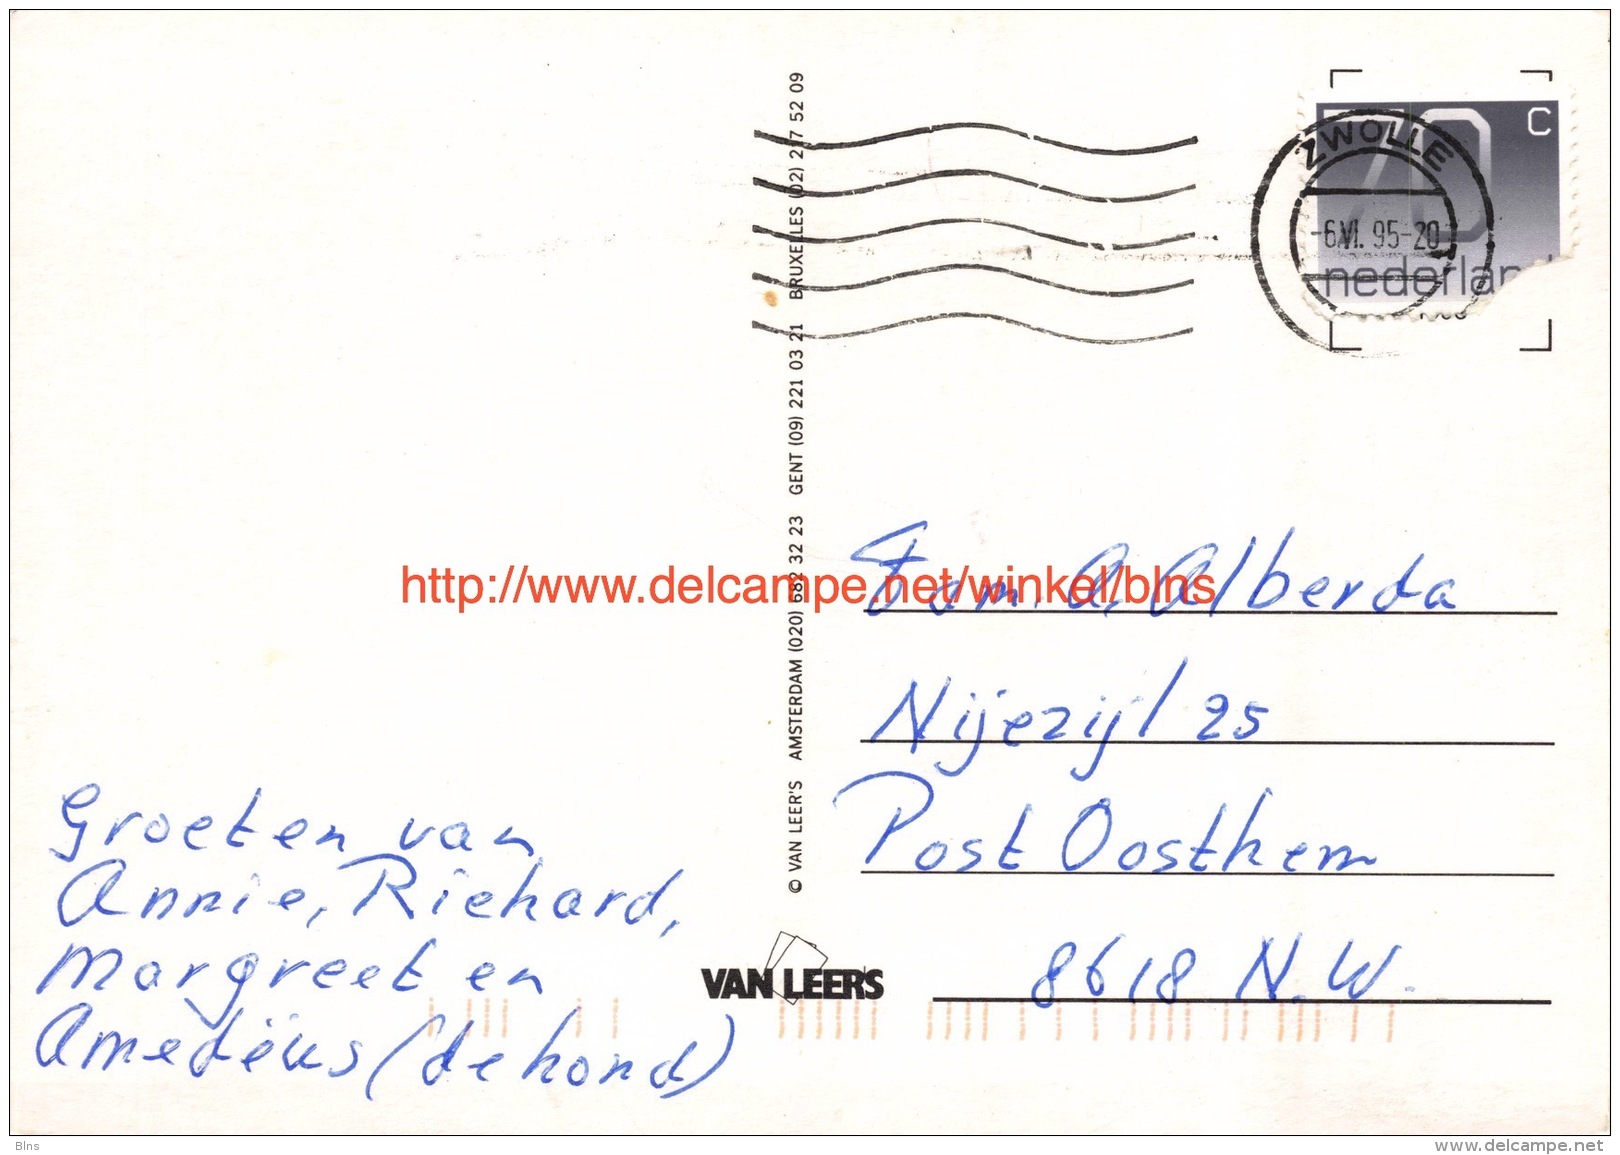 Groeten van
Annie, Richard,
Margreet en
Amedëus (de hond)
© VAN LEER'S AMSTERDAM (020) 682 32 23 GENT (09) 221 03 21 BRUXELLES (02) 217 52 09
VAN LEER'S
70 C
nederland
ZWOLLE
-6.VI.95-20
Fam. A. Alberda
Nijezijl 25
Post Oosthem
8618 N.W.
http://www.delcampe.net/winkel/blns
Blns
www.delcampe.net